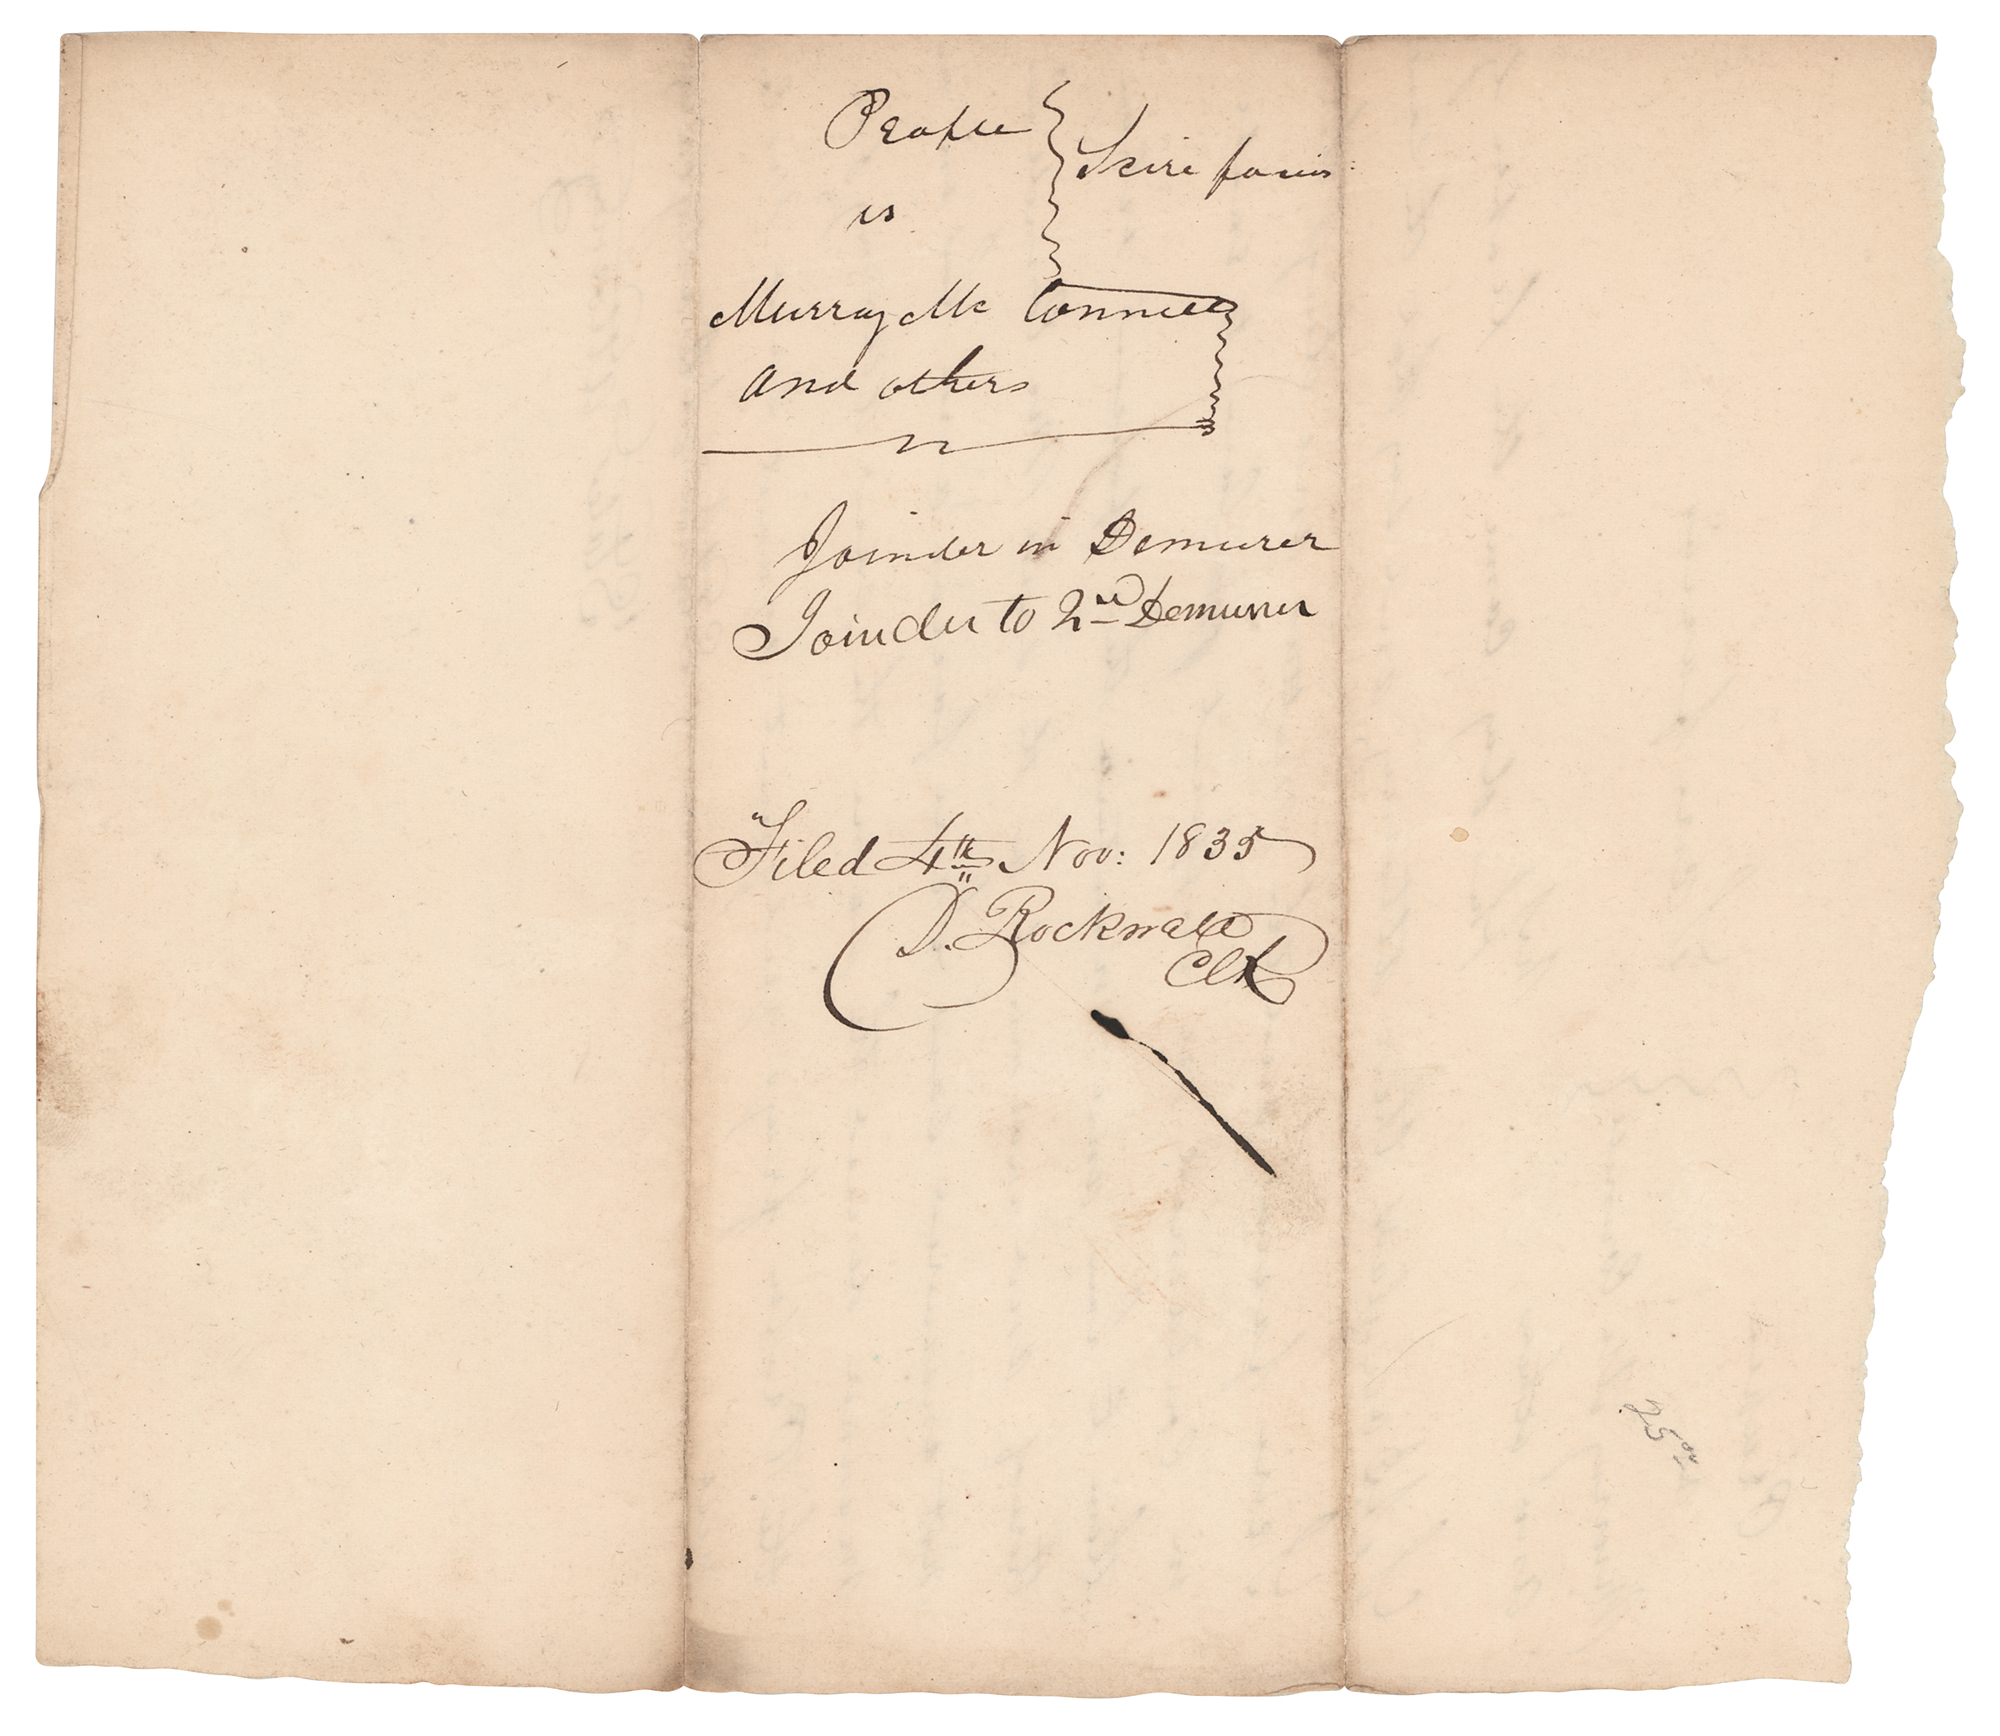 People
Scire facias
vs
Murray Mc Connell
and others
Joinder in Demurer
Joinder to 2nd Demurrer
Filed 4th Nov: 1835
D. Rockwell
Clk
25